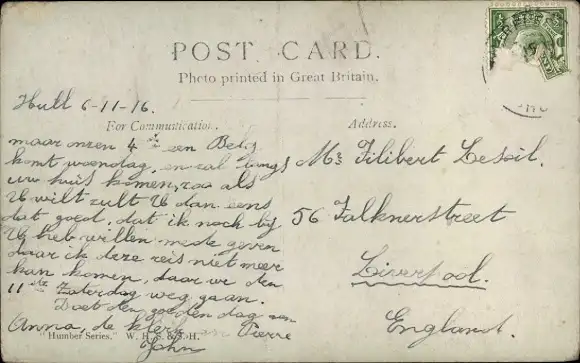 POST CARD.
Photo printed in Great Britain.
Hull 6-11-16.
For Communication.
maar onzen 4de een Belg
komt woensdag, en zal langs
uw huis komen, zoo als
U wilt zult U dan eens
dat goed, dat ik noch bij
U heb willen mede geven
daar ik deze reis niet meer
kan komen, daar we den
11de Zaterdag weg gaan.
Doet den goeden dag aan
Anna, de klerk, Pierre
John
"Humber Series," W. H. S. & S. H.
Address.
Mr Filibert Lesoil.
56 Falknerstreet
Liverpool.
England.